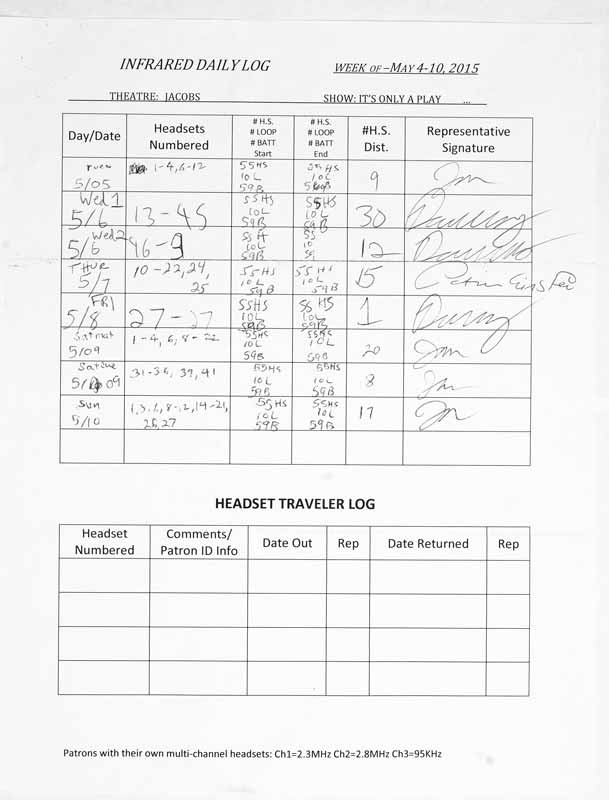 INFRARED DAILY LOG WEEK OF –MAY 4-10, 2015
THEATRE: JACOBS SHOW: IT'S ONLY A PLAY ...
Day/Date Headsets Numbered # H.S. # LOOP # BATT Start # H.S. # LOOP # BATT End #H.S. Dist. Representative Signature
Tues 5/05 1-4, 6-12 55HS 10L 59B 55HS 10L 9
Wed 1 5/6 13-45 55HS 10L 59B 55HS 10L 59B 30
Wed 2 5/6 46-9 55H 10L 59B 55 10 59 12
THUR 5/7 10-22, 24, 25 55HS 10L 59B 55HS 10L 59B 15
FRI 5/8 27-27 55HS 10L 59B 55 HS 10L 59B 1
Satmat 5/09 1-4, 6, 8-22 55HS 10L 59B 55HS 10L 59B 20
Sateve 5/09 31-36, 39, 41 55HS 10L 59B 55HS 10L 59B 8
Sun 5/10 1, 3, 6, 8-12, 14-21, 26, 27 55HS 10L 59B 55HS 10L 59B 17
HEADSET TRAVELER LOG
Headset Numbered Comments/ Patron ID Info Date Out Rep Date Returned Rep
Patrons with their own multi-channel headsets: Ch1=2.3MHz Ch2=2.8MHz Ch3=95KHz